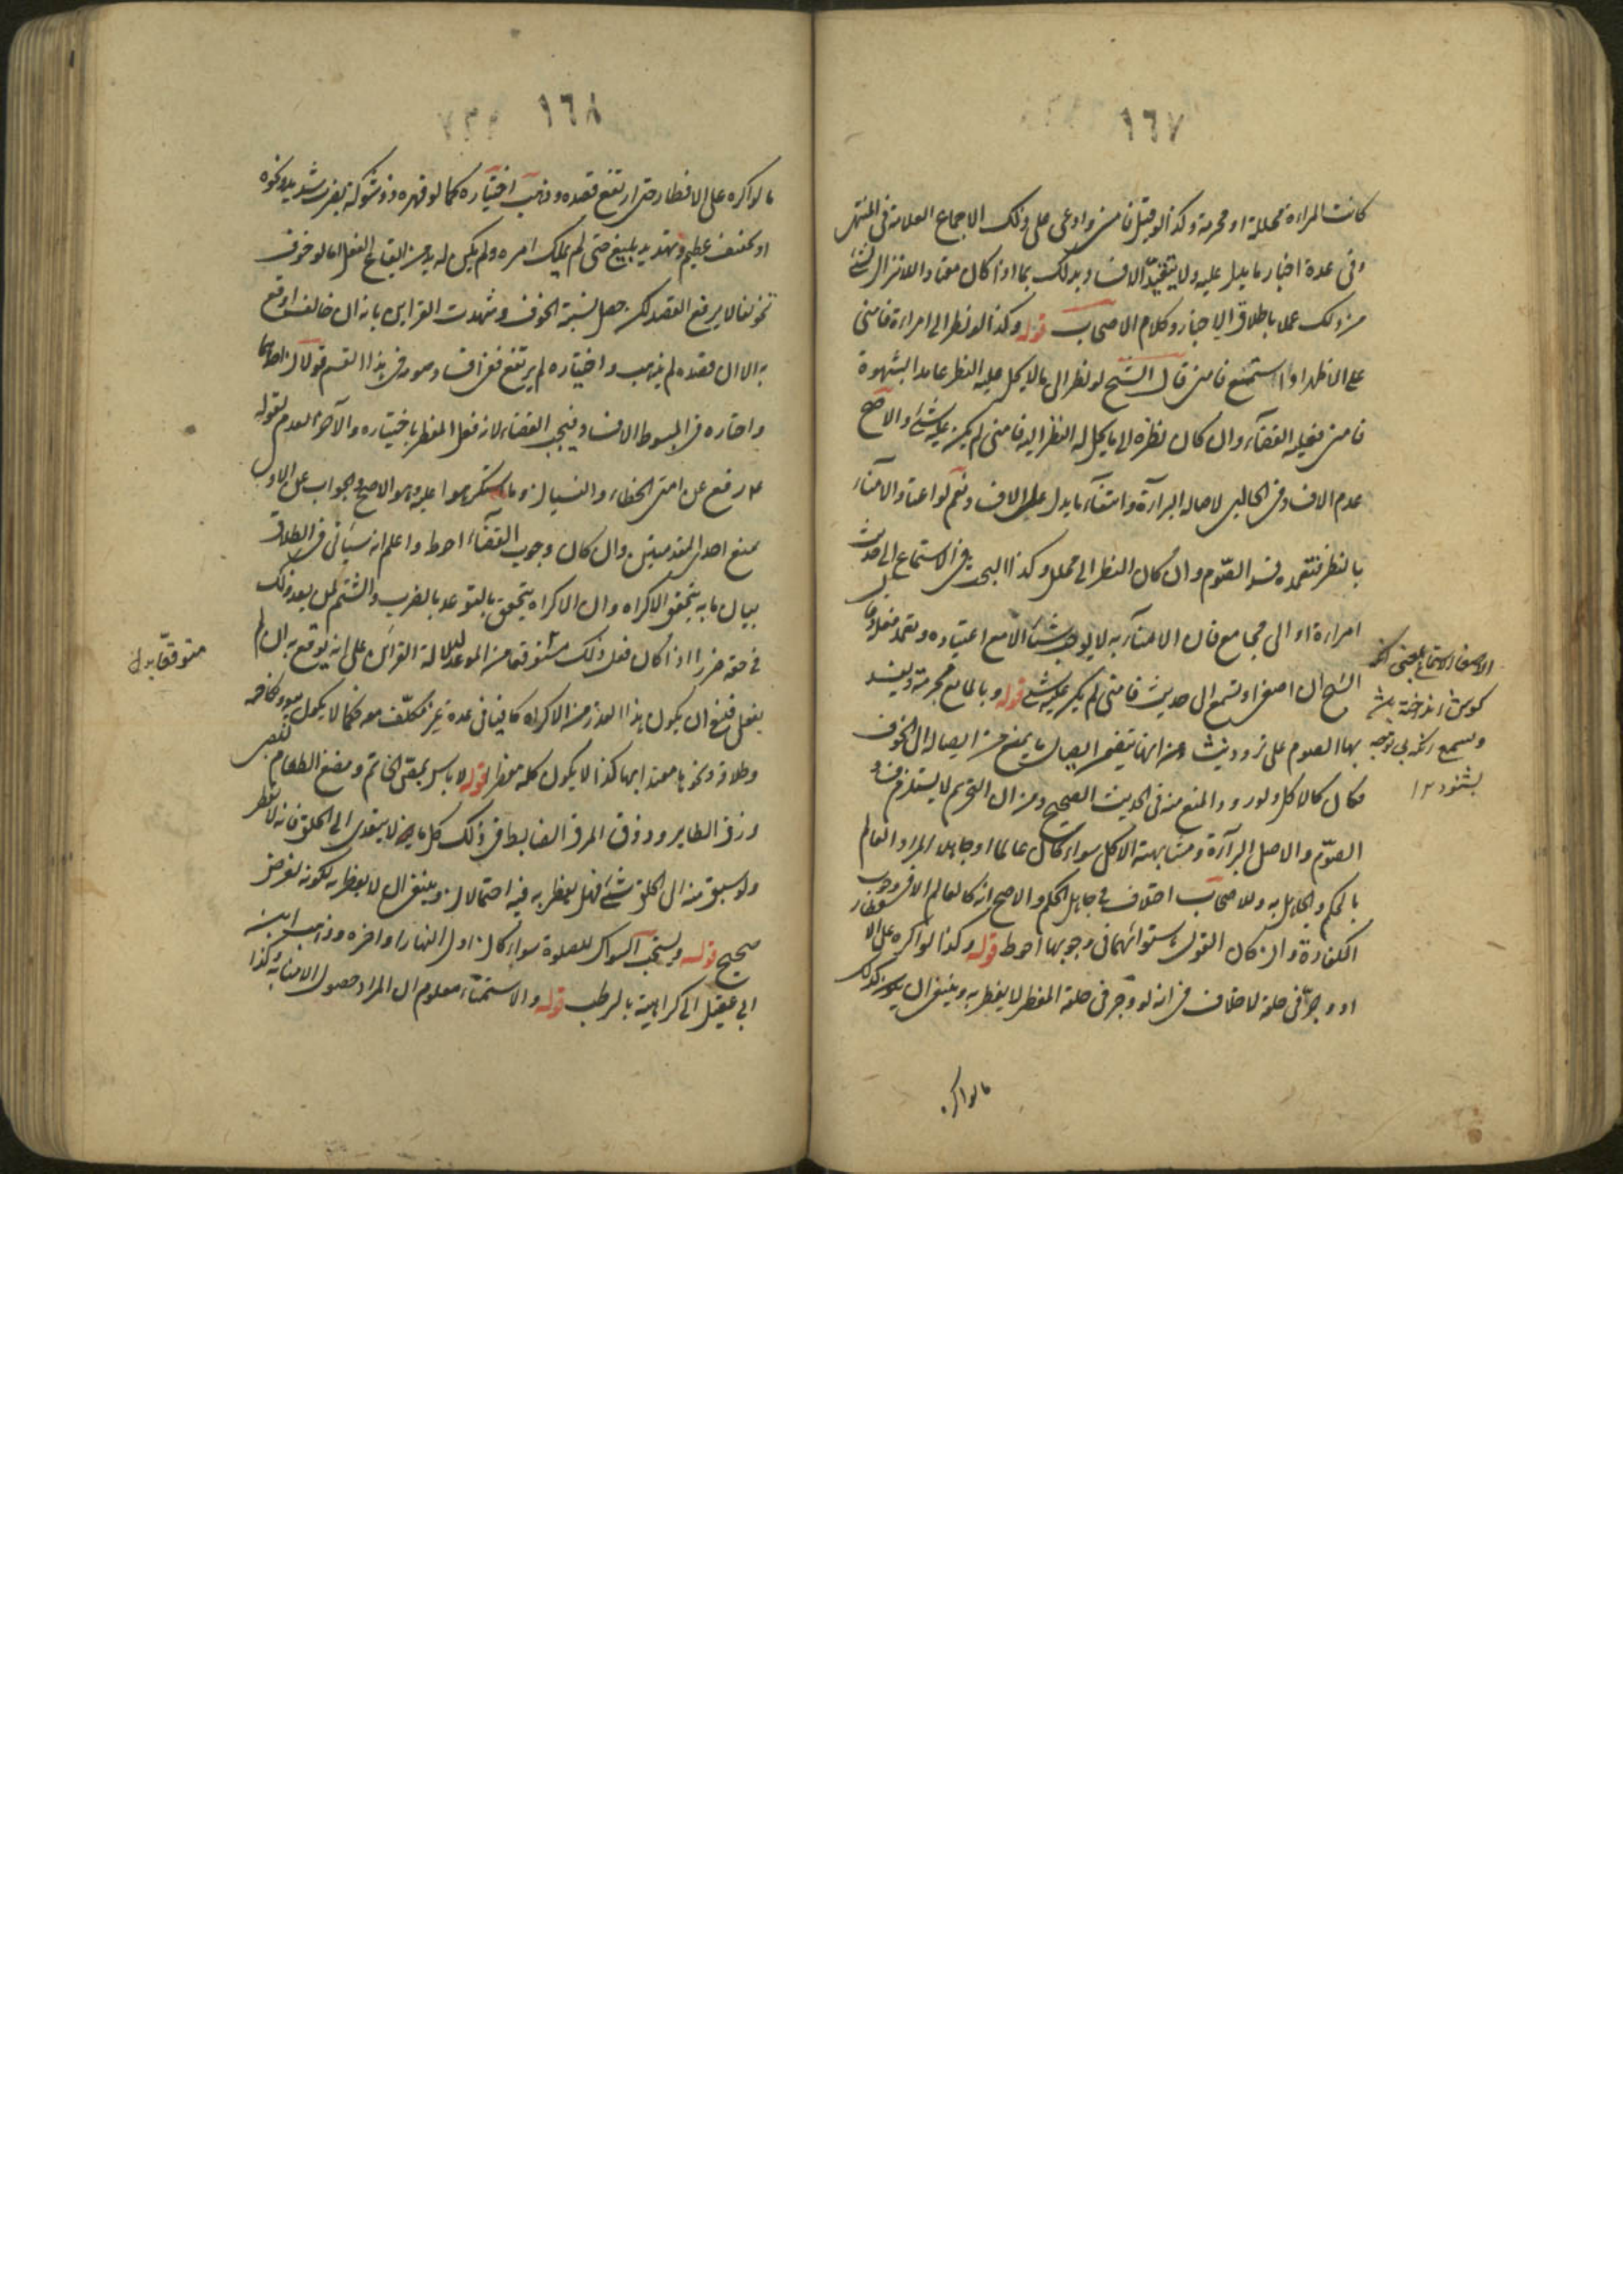 ١٦٧
كانت المراة محللة او محرمة وكذا لو قبل فامنى وادعى على ذلك الاجماع العلامة فى المنتهى
وفى عدة اخبار ما يدل عليه ولا يتقيد الافساد بذلك بما اذا كان معتاد الانزال لشئ
من ذلك عملا باطلاق الاخبار وكلام الاصحاب قوله وكذا لو نظر الى امراة فامنى
على الاظهر او استمع فامنى قال الشيخ لو نظر الى ما لا يحل عليه النظر عامدا بشهوة
فامنى فعليه القضاء وان كان نظره الى ما يحل له النظر اليه فامنى لم يكن عليه شئ والاصح
عدم الافساد فى الحالين لاصالة البرآءة وانتفاء ما يدل على الافساد نعم لو اعتاد الامناء
بالنظر فتعمده فسد الصّوم وان كان النظر الى محلل وكذا البحث فى الاستماع الى حديث
امراءة او الى مجامع فان الامناء به لا يوجب شيئا الا مع اعتياده وتعمد فعله وقال
الشيخ ان اصغى او تسمع الى حديث فامنى لم يكن عليه شئ قوله وبالمايع محرمة ويفسد
بها الصوم على تردد ينشأ من انها تتضمن ايصال ما يمنع من ايصاله الى الجوف
فكان كالاكل ولورود المنع منه فى الحديث الصحيح ومن ان التحريم لا يستلزم فساد
الصّوم والاصل البرآءة ومشابهته الاكل سواء كان عالما او جاهلا المراد العالم
بالحكم والجاهل به وللاصحاب اختلاف فى جاهل الحكم والاصح انه كالعالم الا فى وجوب
الكفارة وان كان القول باستوائهما فى وجوبها احوط قوله وكذا لو اكره على الافطار
او وجر فى حلقه لا خلاف فى انه لو وجر فى حلقه المفطر لا يفطر به وينبغى ان يكون كذلك
ما لو اكره
الاصغاء الاستماع بمعنى انكه
كوش انداخته باشد
وتسمع انكه بى توجه
بشنود ١٢
١٦٨
ما لو اكره على الافطار حتى ارتفع قصده وذهب اختياره كما لو قهره ذو شوكة بضرب شديد ونحوه
او بعنف عظيم وتهديد بليغ حتى لم يملك امره ولم يكن له بد من ايقاع الفعل اما لو خوف
تخويفا لا يرفع القصد لكن حصل بسببه الخوف وشهدت القراين بانه ان خالف اوقع
به الا ان قصده لم يذهب واختياره لم يرتفع ففى افساد صومه فى هذا القسم قولان احدهما
واختاره فى المبسوط الافساد فيجب القضاء لانه فعل المفطر باختياره والآخر العدم لقوله
ع رفع عن امتى الخطاء والنسيان وما استكرهوا عليه وهو الاصح والجواب عن الاول
بمنع احدى المقدمتين وان كان وجوب القضاء احوط واعلم انه سيأتى فى الطلاق
بيان ما به يتحقق الاكراه وان الاكراه يتحقق بالتوعد بالضرب والشتم لمن يعد ذلك
فى حقه ضررا اذا كان فعل ذلك متوقعا من الموعد لدلالة القراين على انه يوقع به ان لم
يفعل فينبغى ان يكون هذا العذر من الاكراه كافيا فى عدة غير مكلّف معه فكما لا يكون بيعه ونكاحه
وطلاقه ونحوها معتدا بها كذا لا يكون اكله مفطرا قوله لا باس بمص الخاتم ومضغ الطعام للصبى
وزق الطاير وذوق المرق الضابط فى ذلك كل ما لا يتعدى الى الحلق فانه لا يفطر
ولو سبق منه الى الحلق شئ فهل يفطر به فيه احتمالان وينبغى ان لا يفطر به لكونه لغرض
صحيح قوله ويستحب السواك للصلوة سواء كان اول النهار او اخره وذهب ابن
ابى عقيل الى كراهية بالرطب قوله والاستمناء معلوم ان المراد حصول الامناء به وكذا
متوقعا بدل